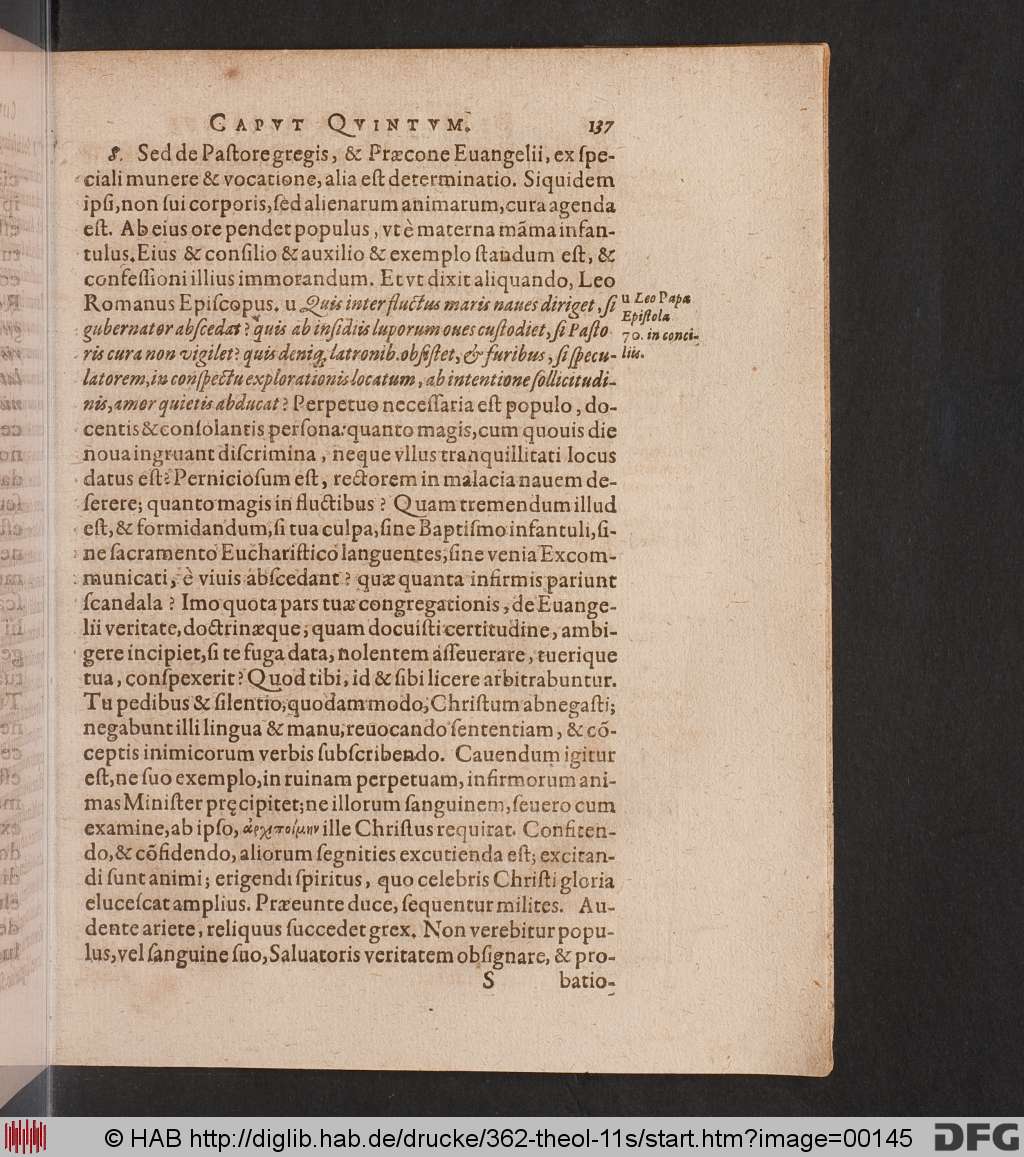 CAPVT QVINTVM. 137
8. Sed de Paſtore gregis, & Præcone Euangelii, ex ſpe-
ciali munere & vocatione, alia eſt determinatio. Siquidem
ipſi, non ſui corporis, ſed alienarum animarum, cura agenda
eſt. Ab eius ore pendet populus, vt è materna mãma infan-
tulus. Eius & conſilio & auxilio & exemplo ſtandum eſt, &
confeſſioni illius immorandum. Et vt dixit aliquando, Leo
Romanus Epiſcopus. u Quis inter fluctus maris naues diriget, ſi
gubernator abſcedat? quis ab inſidiis luporum oues cuſtodiet, ſi Paſto-
ris cura non vigilet? quis deniq; latronib. obſiſtet, & furibus, ſi ſpecu-
latorem, in conſpectu explorationis locatum, ab intentione ſollicitudi-
nis, amor quietis abducat? Perpetuo neceſſaria eſt populo, do-
centis & conſolantis perſona: quanto magis, cum quouis die
noua ingruant diſcrimina, neque vllus tranquillitati locus
datus eſt? Pernicioſum eſt, rectorem in malacia nauem de-
ſerere; quanto magis in fluctibus? Quam tremendum illud
eſt, & formidandum, ſi tua culpa, ſine Baptiſmo infantuli, ſi-
ne ſacramento Euchariſtico languentes, ſine venia Excom-
municati, è viuis abſcedant? quæ quanta infirmis pariunt
ſcandala? Imo quota pars tuæ congregationis, de Euange-
lii veritate, doctrinæque, quam docuiſti certitudine, ambi-
gere incipiet, ſi te fuga data, nolentem aſſeuerare, tuerique
tua, conſpexerit? Quod tibi, id & ſibi licere arbitrabuntur.
Tu pedibus & ſilentio, quodammodo, Chriſtum abnegaſti;
negabunt illi lingua & manu, reuocando ſententiam, & cõ-
ceptis inimicorum verbis ſubſcribendo. Cauendum igitur
eſt, ne ſuo exemplo, in ruinam perpetuam, infirmorum ani-
mas Miniſter pręcipitet; ne illorum ſanguinem, ſeuero cum
examine, ab ipſo, ἀρχιποίμην ille Chriſtus requirat. Confiten-
do, & cõfidendo, aliorum ſegnities excutienda eſt; excitan-
di ſunt animi; erigendi ſpiritus, quo celebris Chriſti gloria
eluceſcat amplius. Præeunte duce, ſequentur milites. Au-
dente ariete, reliquus ſuccedet grex. Non verebitur popu-
lus, vel ſanguine ſuo, Saluatoris veritatem obſignare, & pro-
S batio-
u Leo Papa
Epiſtola
70. in conci-
liis.
© HAB http://diglib.hab.de/drucke/362-theol-11s/start.htm?image=00145 DFG